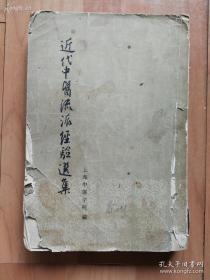 近代中醫流派經驗選集
上海中醫学院編